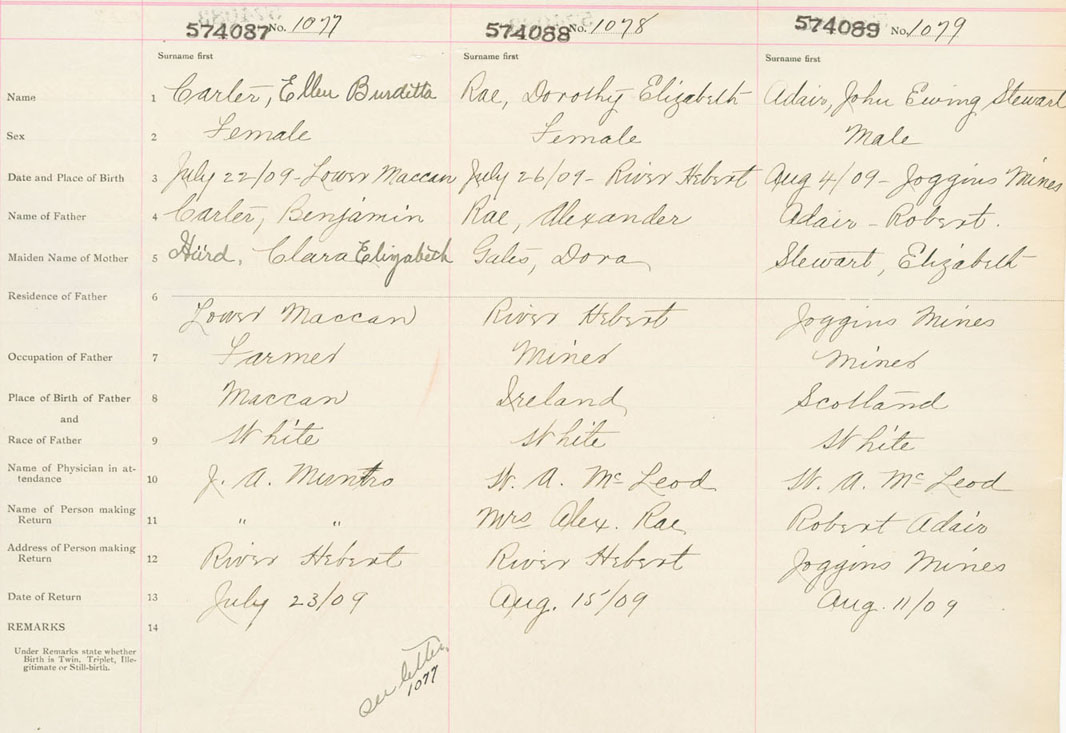 574087 No. 1077 574088 No. 1078 574089 No. 1079
Surname first Surname first Surname first
Name 1 Carter, Ellen Burditta Rae, Dorothy Elizabeth Adair, John Ewing Stewart
Sex 2 Female Female Male
Date and Place of Birth 3 July 22/09 - Lower Maccan July 26/09 - River Hebert Aug 4/09 - Joggins Mines
Name of Father 4 Carter, Benjamin Rae, Alexander Adair - Robert.
Maiden Name of Mother 5 Hurd, Clara Elizabeth Gates, Dora Stewart, Elizabeth
Residence of Father 6 Lower Maccan River Hebert Joggins Mines
Occupation of Father 7 Farmer Miner Miner
Place of Birth of Father 8 Maccan Ireland Scotland
and
Race of Father 9 White White White
Name of Physician in at-
tendance 10 J. A. Munro W. A. McLeod W. A. McLeod
Name of Person making
Return 11 " " Mrs Alex. Rae Robert Adair
Address of Person making
Return 12 River Hebert River Hebert Joggins Mines
Date of Return 13 July 23/09 Aug. 15/09 Aug. 11/09
REMARKS 14
Under Remarks state whether
Birth is Twin, Triplet, Ille-
gitimate or Still-birth.
see letter
1077